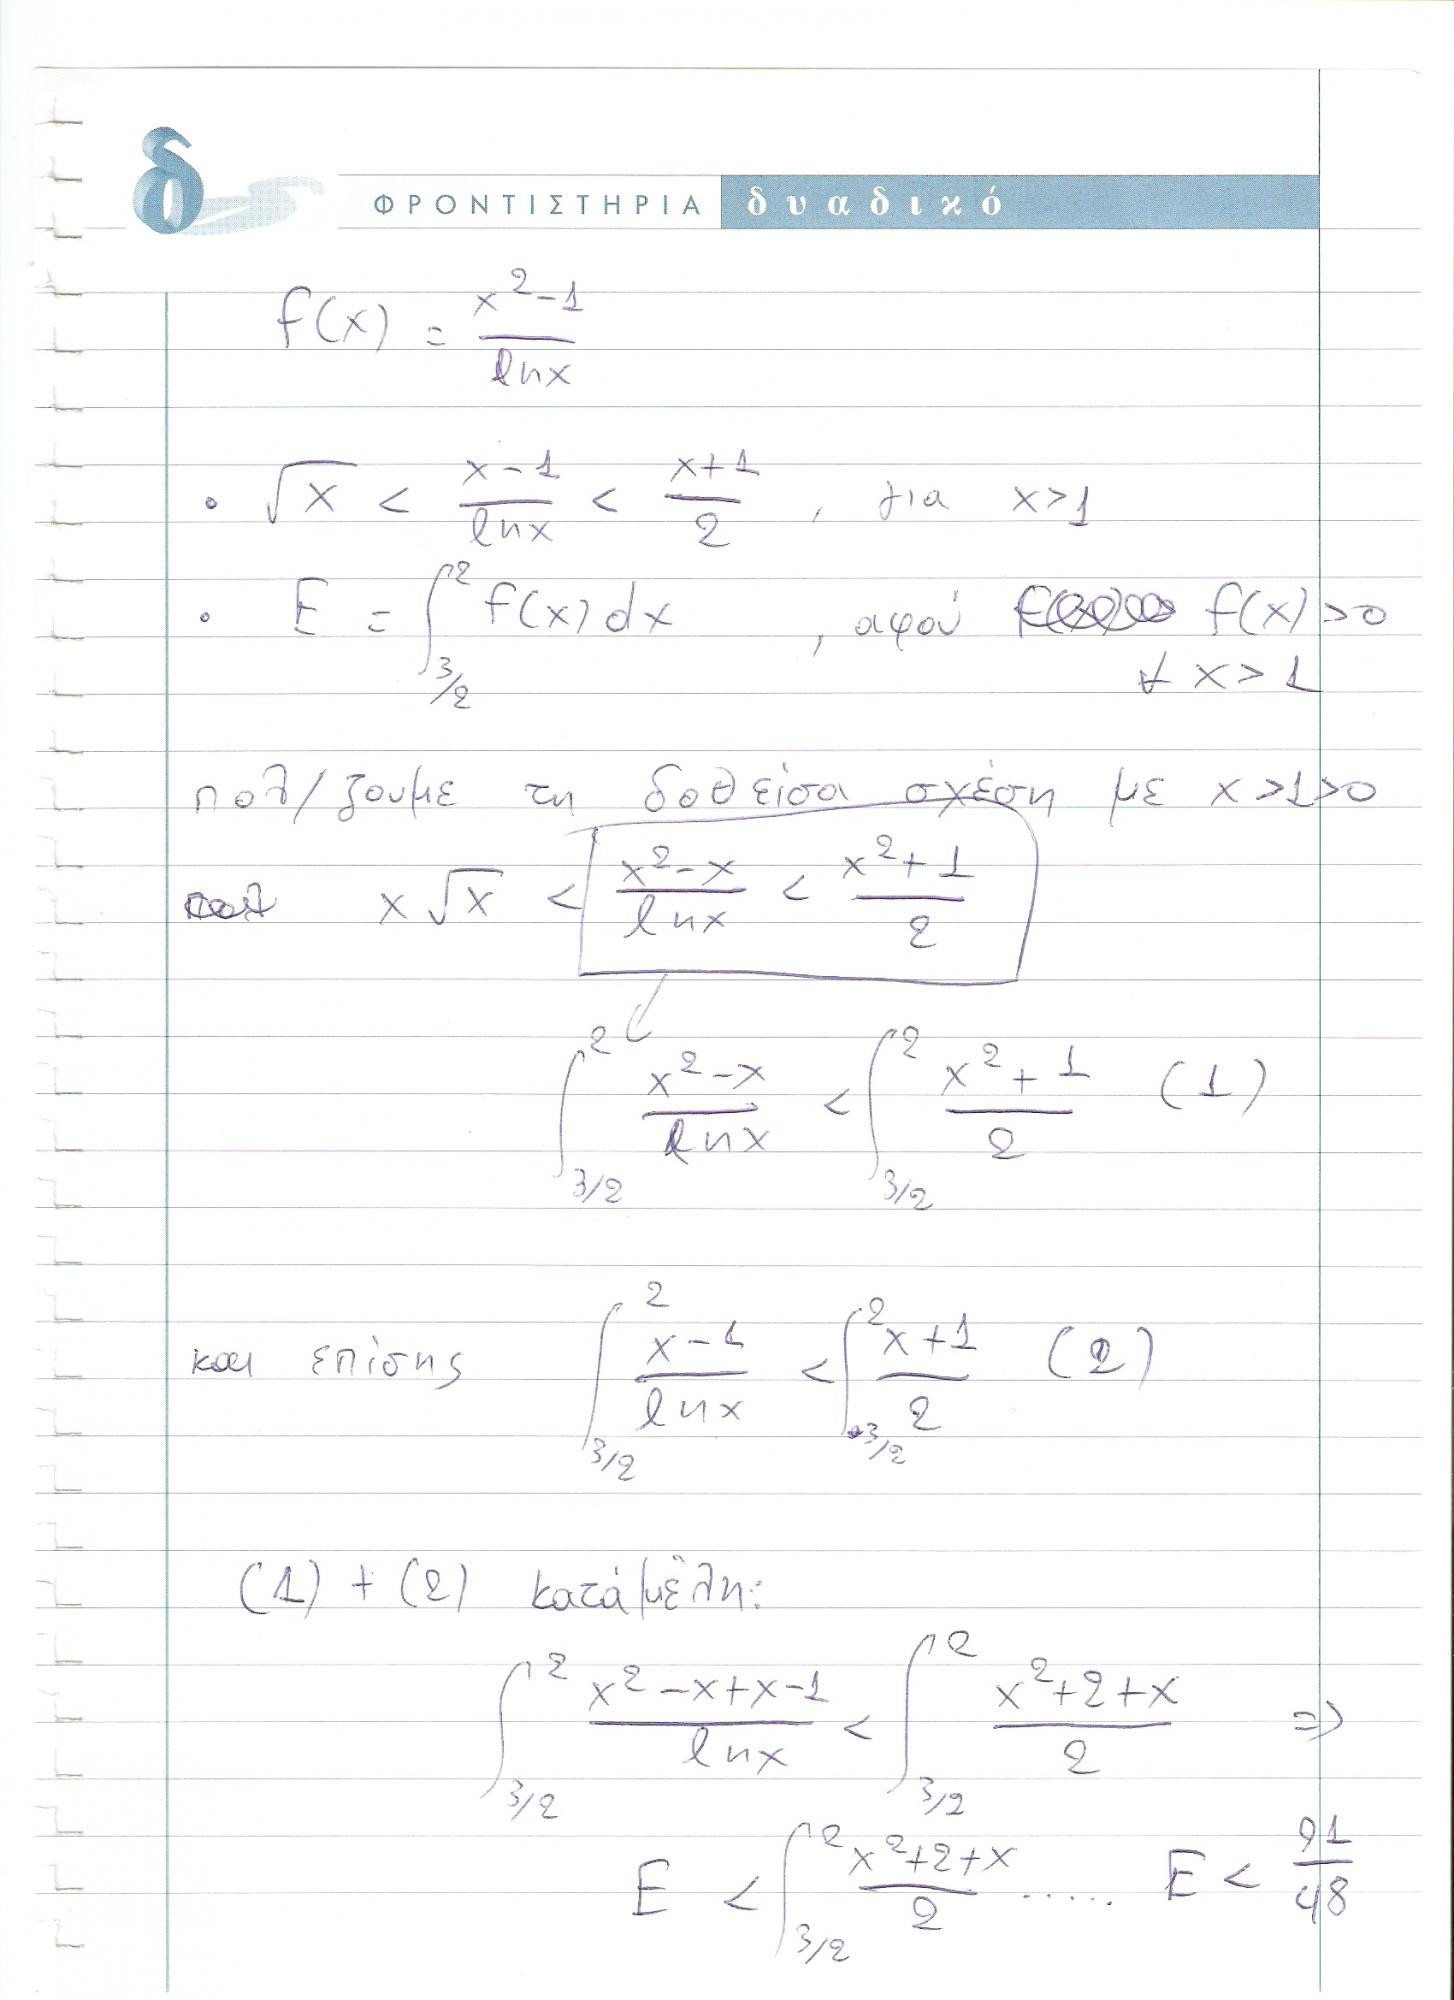 ΦΡΟΝΤΙΣΤΗΡΙΑ δυαδικό
f(x) = \frac{x^2-1}{lnx}
• \sqrt{x} < \frac{x-1}{lnx} < \frac{x+1}{2} , για x>1
• E = \int_{3/2}^{2} f(x)dx , αφού f(x)>0
∀ x>1
πολ/ζουμε τη δοθείσα σχέση με x>1>0
x\sqrt{x} < \frac{x^2-x}{lnx} < \frac{x^2+1}{2}
\int_{3/2}^{2} \frac{x^2-x}{lnx} < \int_{3/2}^{2} \frac{x^2+1}{2} (1)
και επίσης \int_{3/2}^{2} \frac{x-1}{lnx} < \int_{3/2}^{2} \frac{x+1}{2} (2)
(1) + (2) κατά μέλη:
\int_{3/2}^{2} \frac{x^2-x+x-1}{lnx} < \int_{3/2}^{2} \frac{x^2+2+x}{2} =>
E < \int_{3/2}^{2} \frac{x^2+2+x}{2} ...... E < \frac{91}{48}